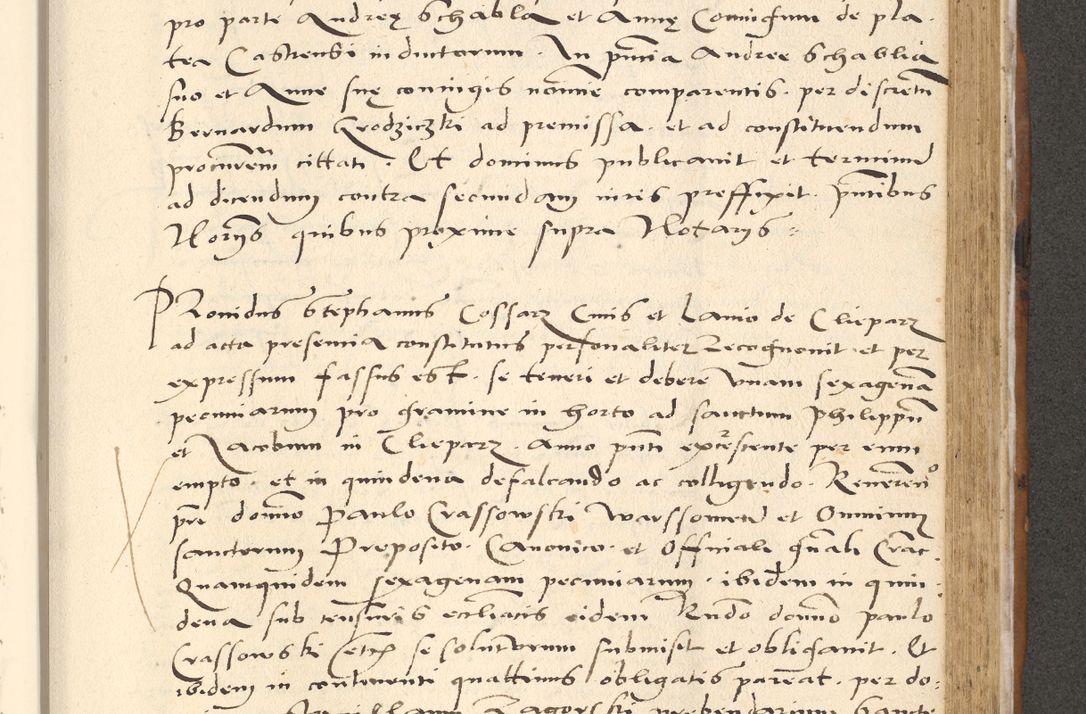 pro parte Andreę Schabla et Annę Coniugum de pla-
tea Castrensi inductorum. In pn̄tia Andree Schablia
suo et Anne suę coniugis nomīe comparentis. per discretū
Bernardum Grodziczki ad premissa. et ad constituendum
procurem̄ cittati. Et dominus publicauit et terminū
ad dicendum contra secundam iuris preffixit. pn̄tibus
Nori͠js quibus proxime supra Notarijs
PRouidus Stephanus Cossarz Ciuis et Lanio de Clieparz
ad acta presentia constitutus personaliter recognouit et per
expressum fassus est. se teneri et debere vnam sexagenā
pecuniarum pro gramine in horto ad sanctum Philippū
et Iacobum in Clieparz. anno pn̄ti excrescente per eum
empto. et in quindena defalcando ac colligendo. Reuerenō
pr̄i domīo Paulo Crassowski Warssouien̄ et Omnium
sanctorum Preposito. Canonico. et Officiali gn̄ali Crac.
Quamquidem sexagenam pecuniarum. ibidem in quin-
dena sub censuris eccl̄iaticis eidem Rn̄do domīo Paulo
Crassowski etc̄ se soluturum submisit et obligauit. Et
ibidem in continenti quattinus obligatis pareat. per do:
Zagorski prebendarium Sancte